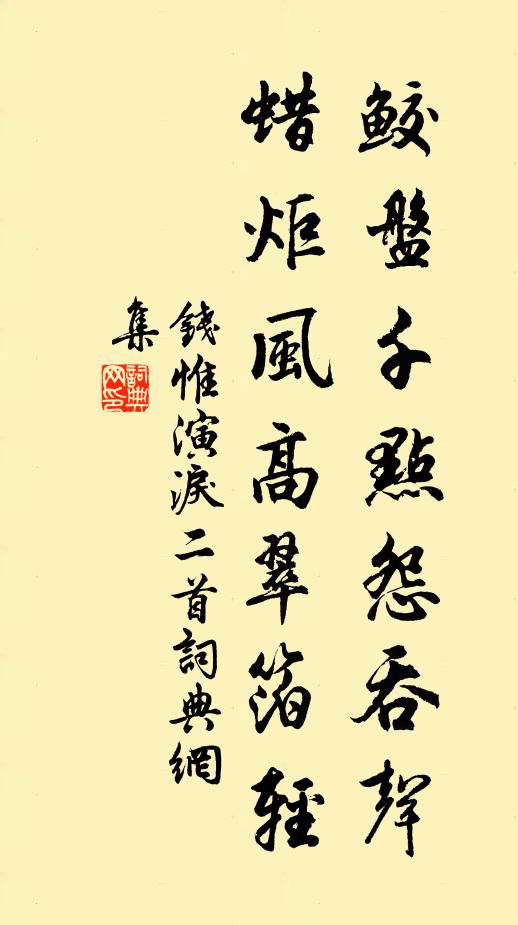 鮫盤千點怨吞聲
蜡炬風高翠箔輕
錢惟演淚二首詞典網
集
詞典
网印